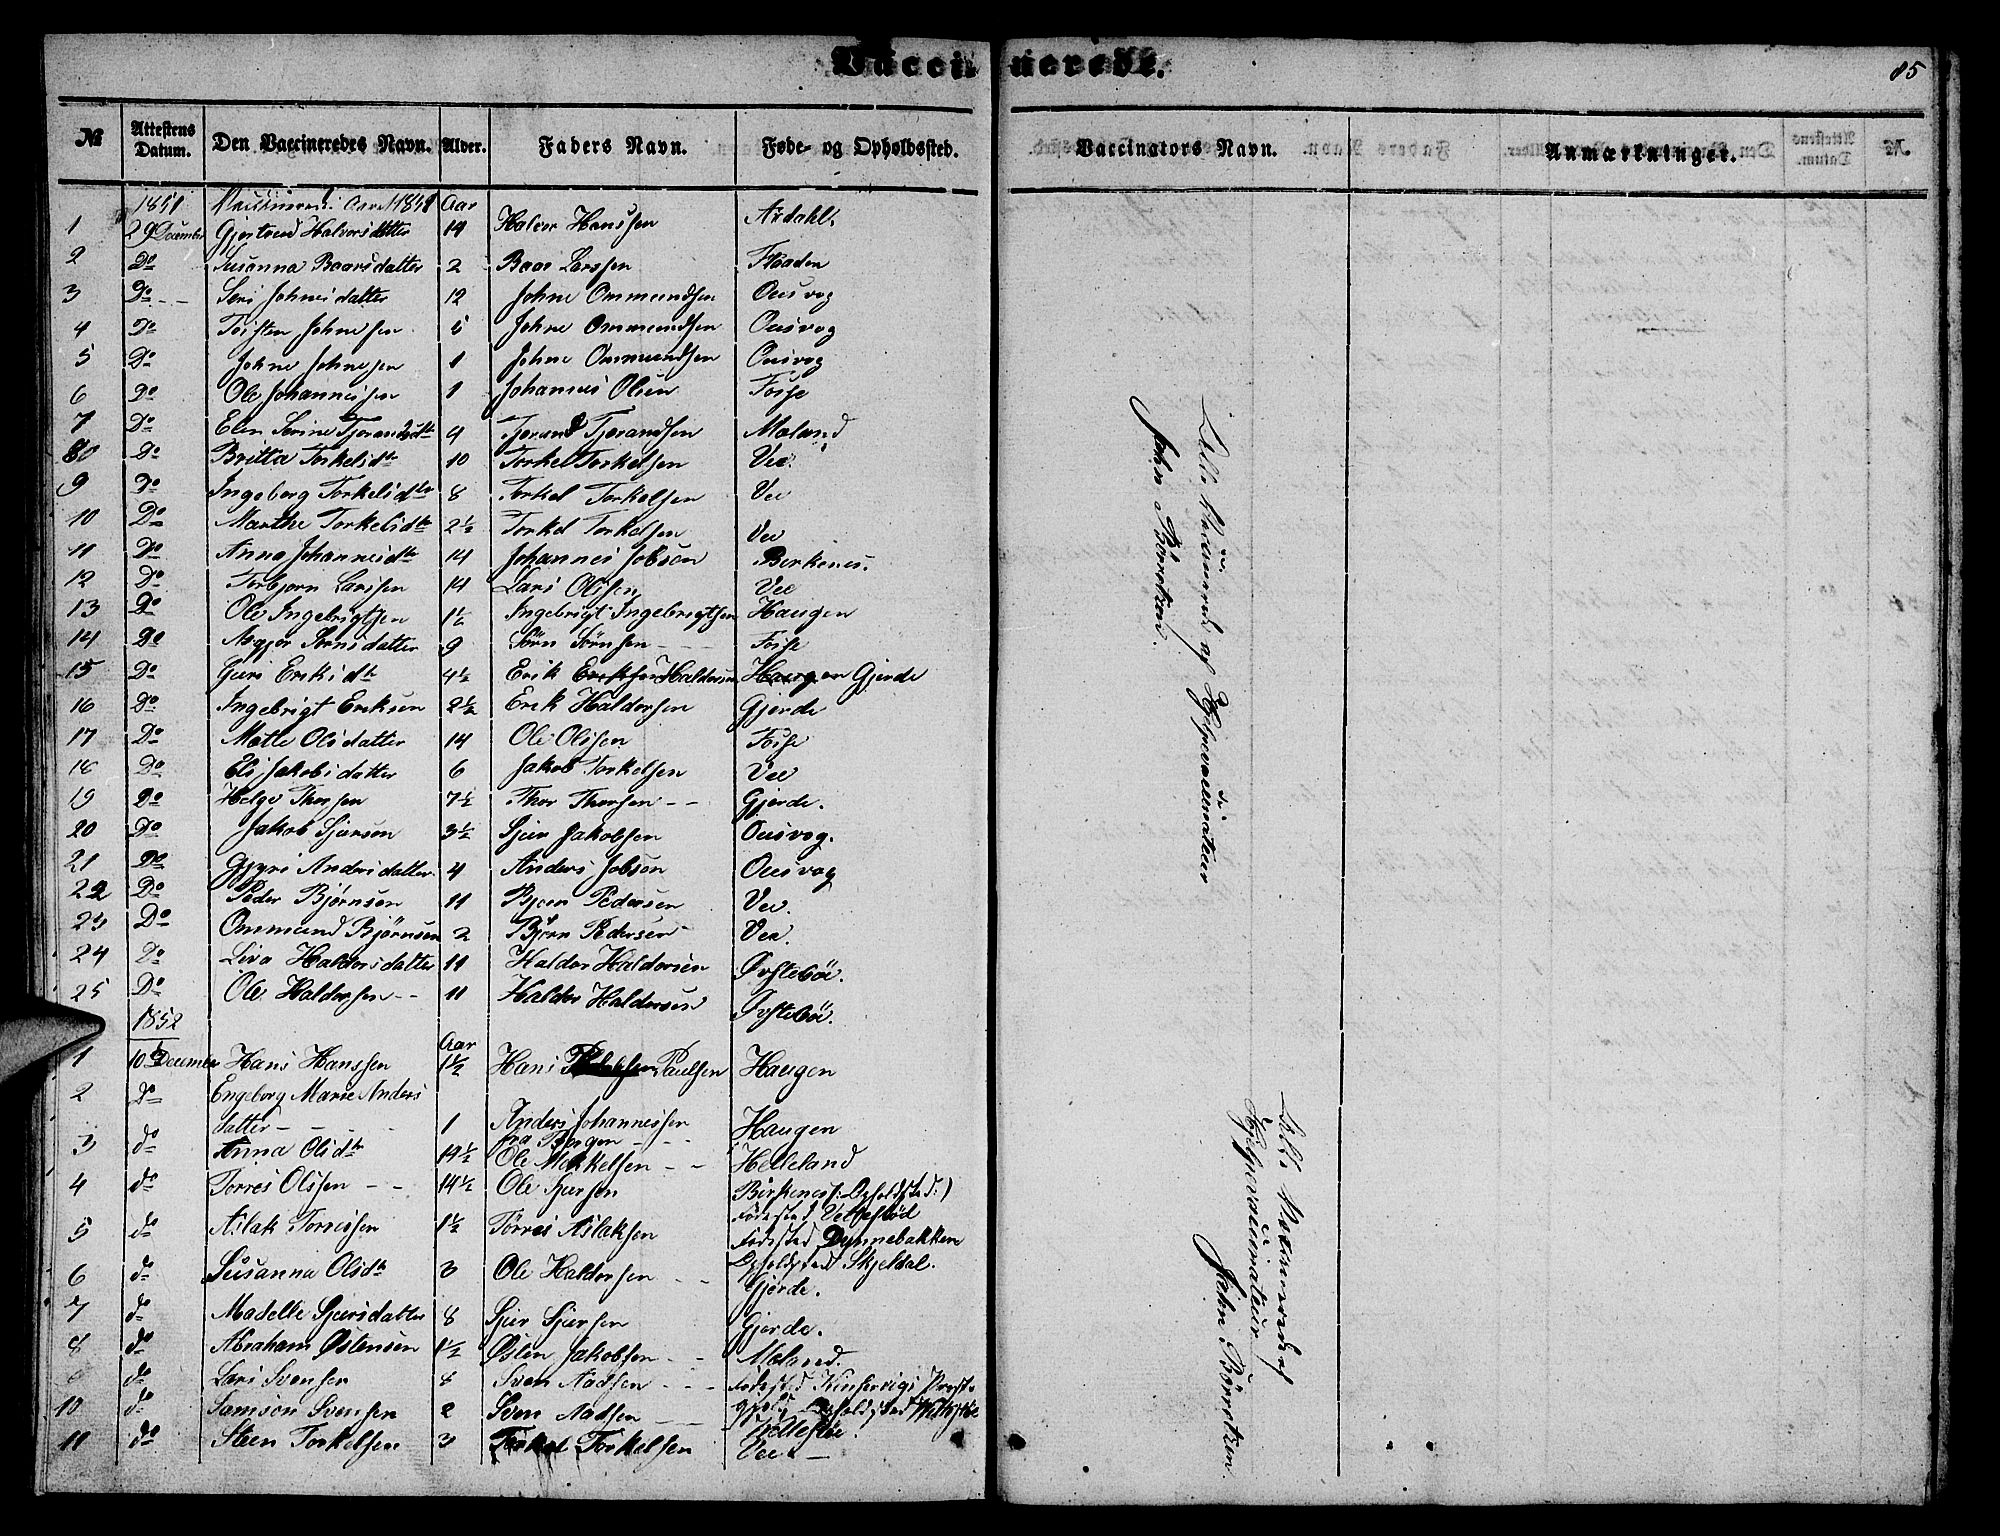 Vaccinerede.
85
№ Attestens Datum. Den Vaccineredes Navn. Alder. Faders Navn. Føde- og Opholdssted. Vaccinators Navn. Anmærkninger.
1851 Vaccinerede i Aaret 1851 Aar
1 29 December Gjertrud Halvorsdatter 14 Halvor Hanssen Ardahl
2 Do Susanna Baarsdatter 2 Baar Larssen
3 Do Seri Johnesdatter 12 Johne Ommundsen Ousvog
4 Do Torsten Johnesen Johne Ommundsen Ousvog
5 Do Johne Johnesen 1 Johne Ommundsen Ousvog
6 Do Ole Johannessen 1 Johannes Olsen Fosse
7 Do Elen Serine Tjerandsdtr 9 Tjerand Tjerandsen Moland
8 Do Britta Torkelsdtr 10 Torkel Torkelsen Vee.
9 Do Ingeborg Torkelsdtr 8 Torkel Torkelsen Vee
10 Do Marthe Torkelsdtr 2½ Torkel Torkelsen Vee
11 Do Anna Johannesdtr 14 Johannes Jobson Berkenes.
12 Do Torbjorn Larssen 14 Lars Olssen Vee
13 Do Ole Ingebrigtsen 1½ Ingebrigt Ingebrigtsen Haugen
14 Do Asgjer Sørnsdatter 9 Sørn Sørnsen Fosse
15 Do Guri Eriksdtr 4½ Erik Eriksen Haldorsen Haugen Gjerde
16 Do Ingebrigt Eriksen 2½ Erik Haldorsen Gjerde
17 Do Mette Olsdatter 14 Ole Olssen Fosse
18 Do Eli Jakobsdatter 6 Jakob Torkelsen Vee
19 Do Helge Thorsen 7½ Thor Thorsen Gjerde.
20 Do Jakob Sjursen 3½ Sjur Jakobsen Ousvog.
21 Do Gyri Andersdatter 4 Anders Jobson Ousvog
22 Do Peder Bjørnsen 11 Bjørn Pedersen Vee.
23 Do Ommund Bjørnsen 2 Bjørn Pedersen Vee.
24 Do Liva Haldorsdatter 11 Haldor Haldorsen Øvstebøe.
25 Do Ole Haldorsen 11 Haldor Haldorsen Øvstebøe.
1852
Aar
1 10 December Hans Hanssen 1½ Hans Paulsen Haugen
2 Do Engeborg Marie Anders
datter 1 Anders Johannessen Haugen
fra Bergen
3 do Anna Olsdtr 14½ Ole Mikkelsen Helleland
4 do Torres Olssen 14½ Ole Sjursen Birkenes (: Opholdsted:)
Fødested Vettestød
5 do Aslak Torressen 1½ Tørres Aslaksen Fødested Dynnebakken
Opholdssted Skjeldal.
6 do Susanna Olsdtr 3 Ole Haldorsen Gjerde.
7 do Madelle Sjursdatter 8 Sjur Sjursen Gjerde.
8 do Abraham Østensen 1½ Østen Jakobsen Moland.
do Lars Svensen 8 Sven Aadsen Fødested Kinservigs Præste
10 do Samson Svensen 2 Sven Aadsen gjeld Opholdssted
11 do Steen Torkelsen 3 Torkel Torkelsen Vee
Alle Vaccinerede af Hjelpevaccinateur
John Børretzen.
Alle Vaccinerede af
Hjelpevaccinateur
John Børretzen